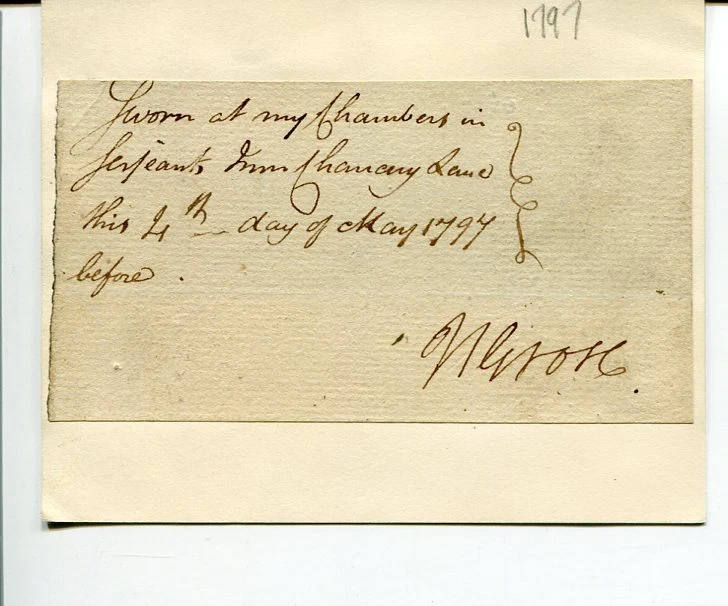 1797
Sworn at my Chambers in
Serjeants Inn Chancery Lane
this 4th day of May 1797
before
N Grose